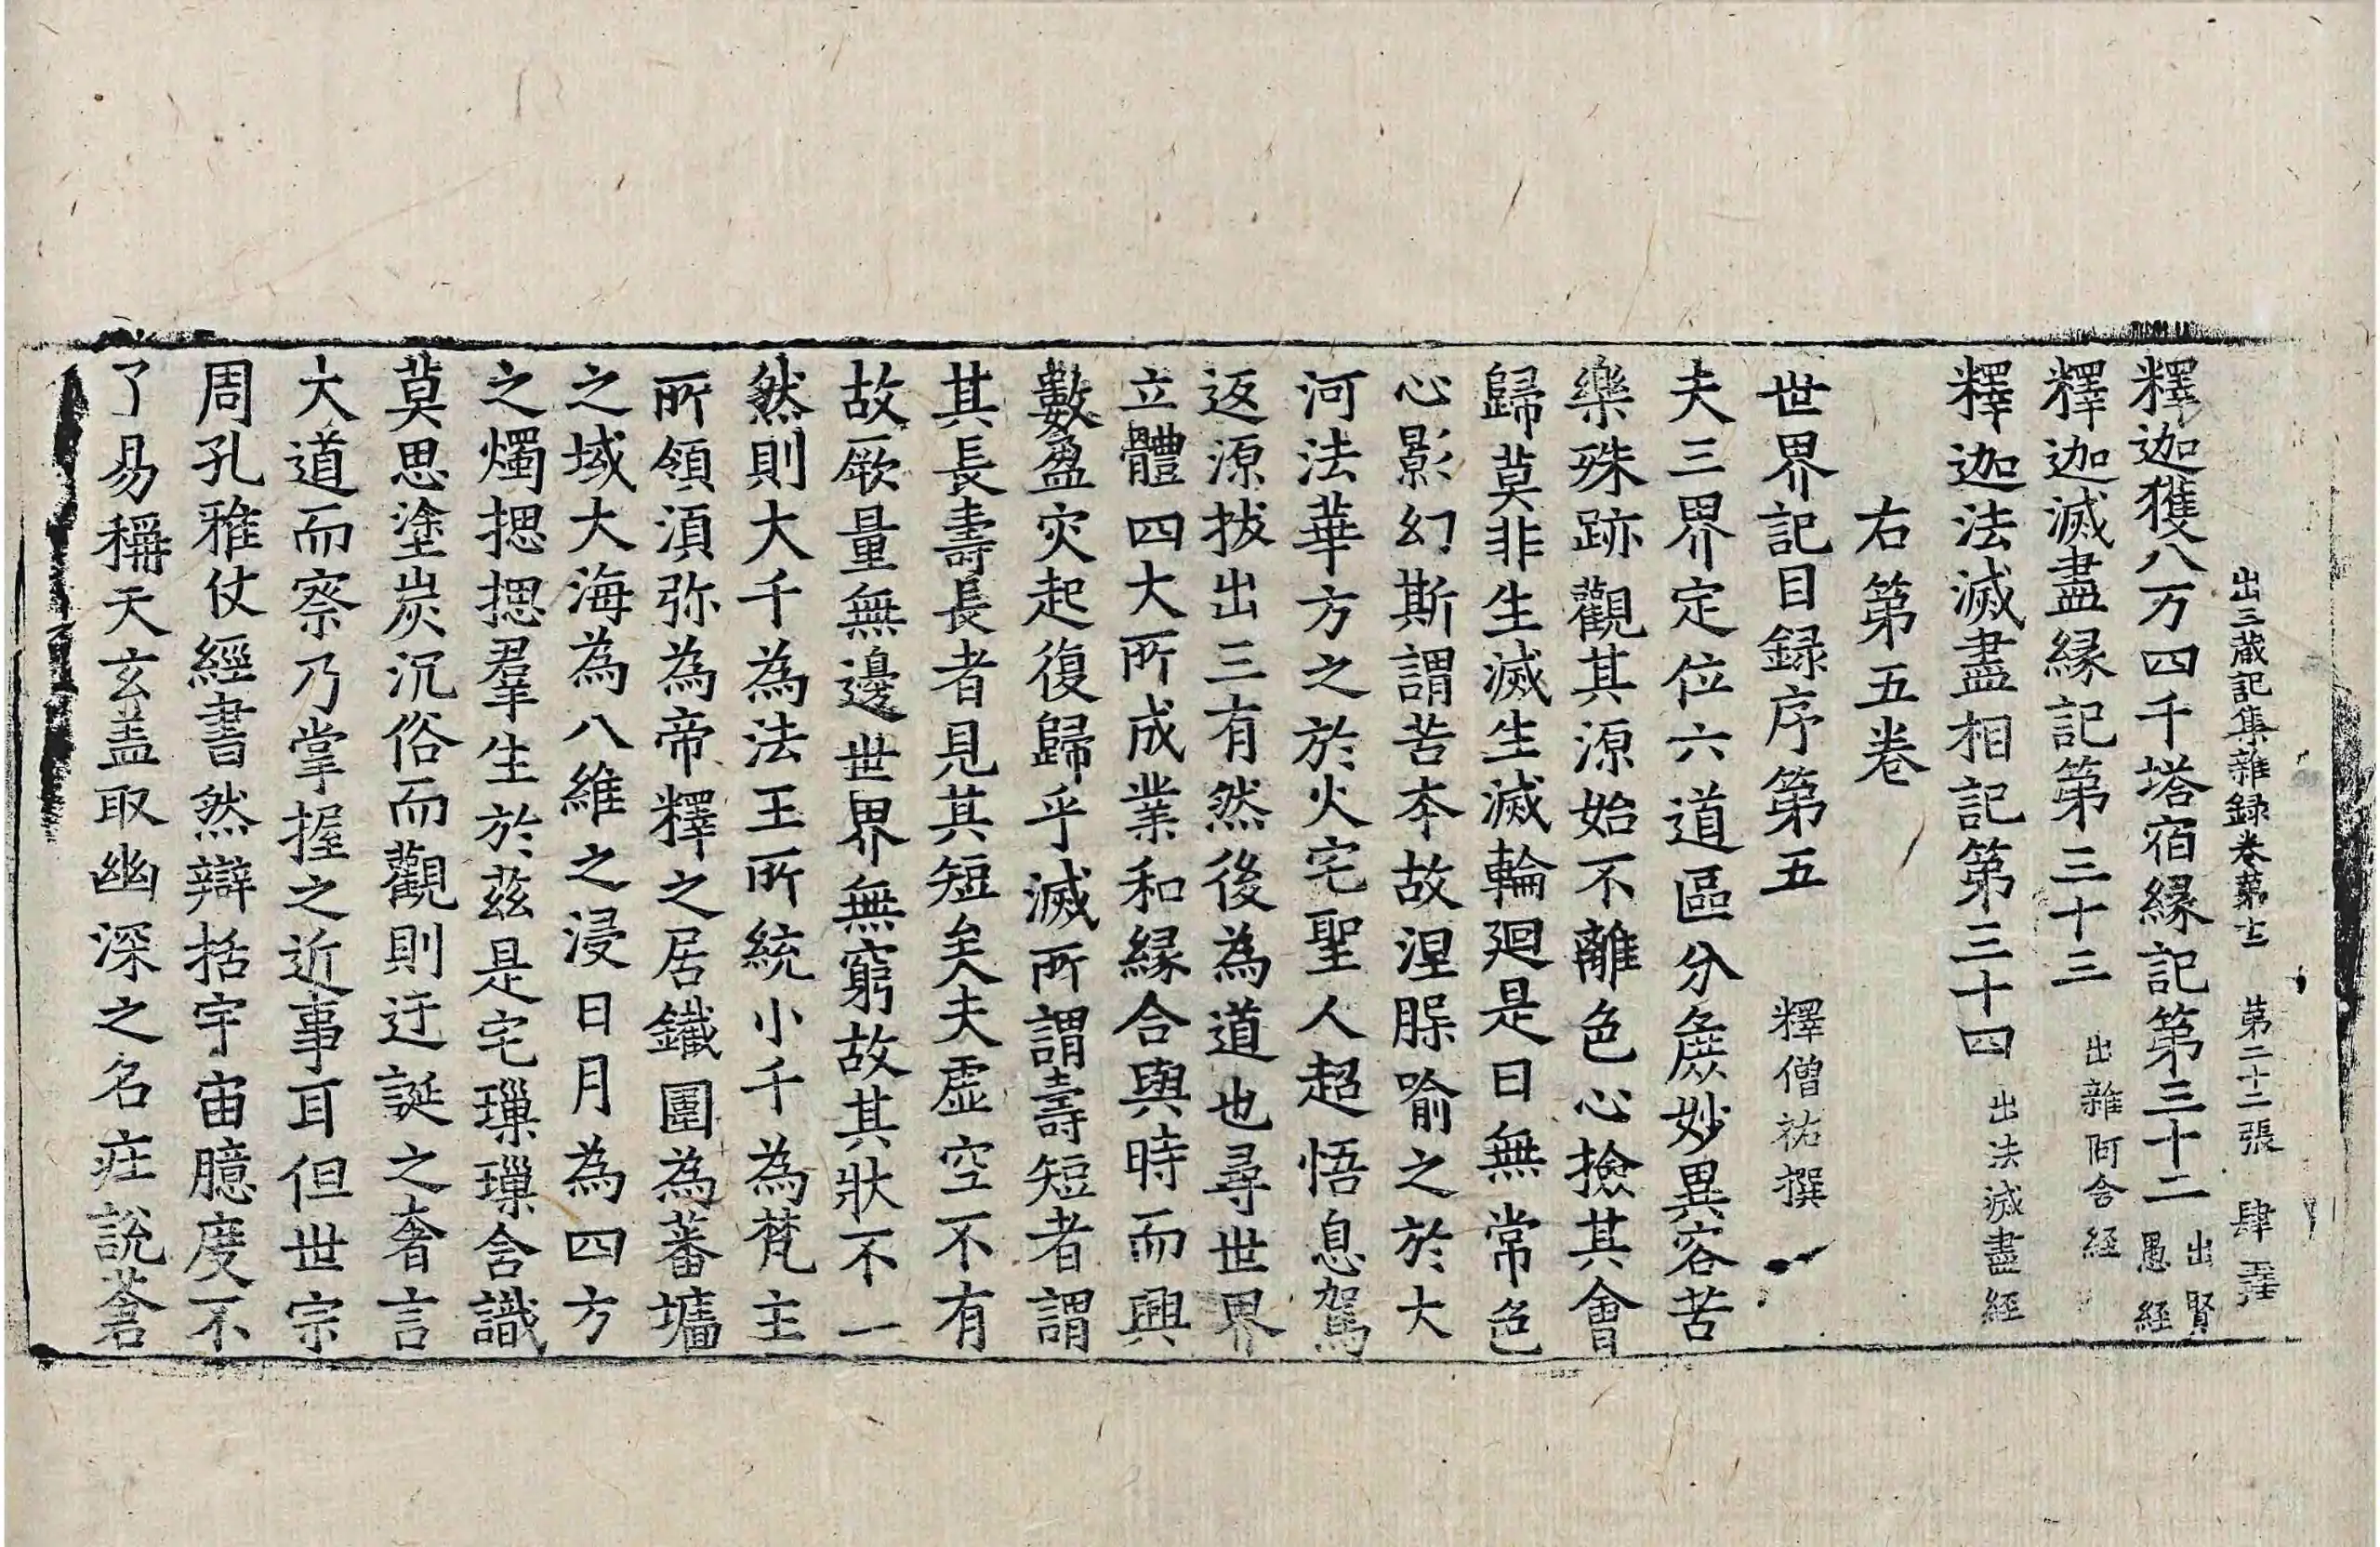 出三蔵記集雜録卷第十二　第二十二張　肆
釋迦獲八万四千塔宿縁記第三十二　出賢愚經
釋迦滅盡縁記第三十三　出雜阿含經
釋迦法滅盡相記第三十四　出法滅盡經
右第五卷
世界記目録序第五　釋僧祐撰
夫三界定位六道區分麁妙異容苦
樂殊跡觀其源始不離色心撿其會
歸莫非生滅生滅輪廻是曰無常色
心影幻斯謂苦本故涅脲喻之於大
河法華方之於火宅聖人超悟息駕
返源拔出三有然後為道也尋世界
立體四大所成業和縁合與時而興
數盈灾起復歸乎滅所謂壽短者謂
其長壽長者見其短矣夫虛空不有
故厥量無邊世界無窮故其狀不一
然則大千為法王所統小千為梵主
所領湏弥為帝釋之居鐵圍為蕃墻
之域大海為八維之浸日月為四方
之燭揔揔羣生於茲是宅璅璅含識
莫思塗炭沉俗而觀則迂誕之奢言
大道而察乃掌握之近事耳但世宗
周孔雅仗經書然辯括宇宙臆度不
了易稱天玄盖取幽深之名庄說蒼